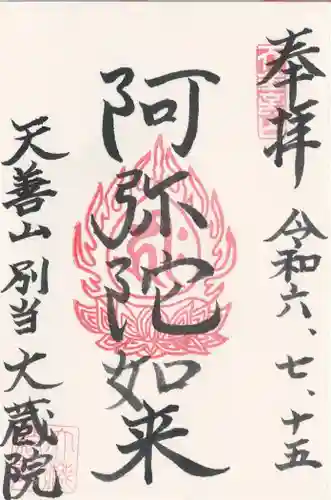 奉拝
令和六、七、十五
阿弥陀如来
天善山別当大蔵院